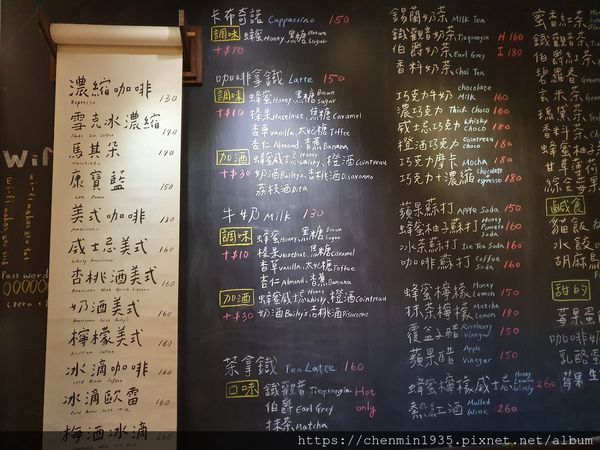 濃縮咖啡 130
Espresso
雪克冰濃縮 140
馬其朵 140
Macchiato
康寶藍 150
Con Panna
美式咖啡 130
Americano
威士忌美式 160
Whisky Americano
杏桃酒美式 160
奶酒美式 160
檸檬美式 150
Sicilian Coffee
冰滴咖啡 160
Cold Brew Coffee
冰滴歐蕾 160
梅酒冰滴 260
Wifi
Password
卡布奇諾 Cappuccino 150
調味 蜂蜜Honey.黑糖Brown Sugar
+$10
咖啡拿鐵 Latte 150
調味 蜂蜜Honey.黑糖Brown Sugar
+$10 榛果Hazelnut.焦糖Caramel
香草Vanilla.太妃糖Toffee
杏仁Almond.香蕉Banana
加酒 蜂蜜威士忌Honey Whisky.橙酒Cointreau
+$30 奶酒Bailey's.杏桃酒Disaronno
荔枝酒Dita
牛奶 Milk 130
調味 蜂蜜Honey.黑糖Brown Sugar
+$10 榛果Hazelnut.焦糖Caramel
香草Vanilla.太妃糖Toffee
杏仁Almond.香蕉Banana
加酒 蜂蜜威士忌Honey Whisky.橙酒Cointreau
+$30 奶酒Bailey's.杏桃酒Disaronno
茶拿鐵 Tea Latte 160
口味 鐵觀音 Tieguanyin Hot
伯爵 Earl Grey only
抹茶 Matcha
錫蘭奶茶 Milk Tea
鐵觀音奶茶 Tieguanyin H 160
伯爵奶茶 Earl Grey I 180
香料奶茶 Chai Tea
巧克力牛奶 Chocolate Milk 160
濃巧克力 Thick Choco 160
威士忌巧克力 Whisky Choco 180
橙酒巧克力 Cointreau Choco 180
巧克力摩卡 Mocha 160
巧克力+濃縮 Chocolate espresso 180
蘋果蘇打 Apple Soda 150
蜂蜜柚子蘇打 Honey Pomelo Soda 160
冰茶蘇打 Ice Tea Soda 160
咖啡蘇打 Coffee Soda 160
蜂蜜檸檬 Honey Lemon 150
抹茶檸檬 Matcha Lemon 190
覆盆子醋 Vinegar 150
蘋果醋 Apple Vinegar 150
蜂蜜檸檬威士忌 Honey Lemon Whisky 260
熱紅酒 Mulled Wine 260
蜜香紅茶
鐵觀音
伯爵茶
碧螺春
玄米茶
香料茶
鹹食
貓飯
水餃
胡麻
甜的
莓果
咖啡
乳酪蛋
蘋果
https://chenmin1935.pixnet.net/album